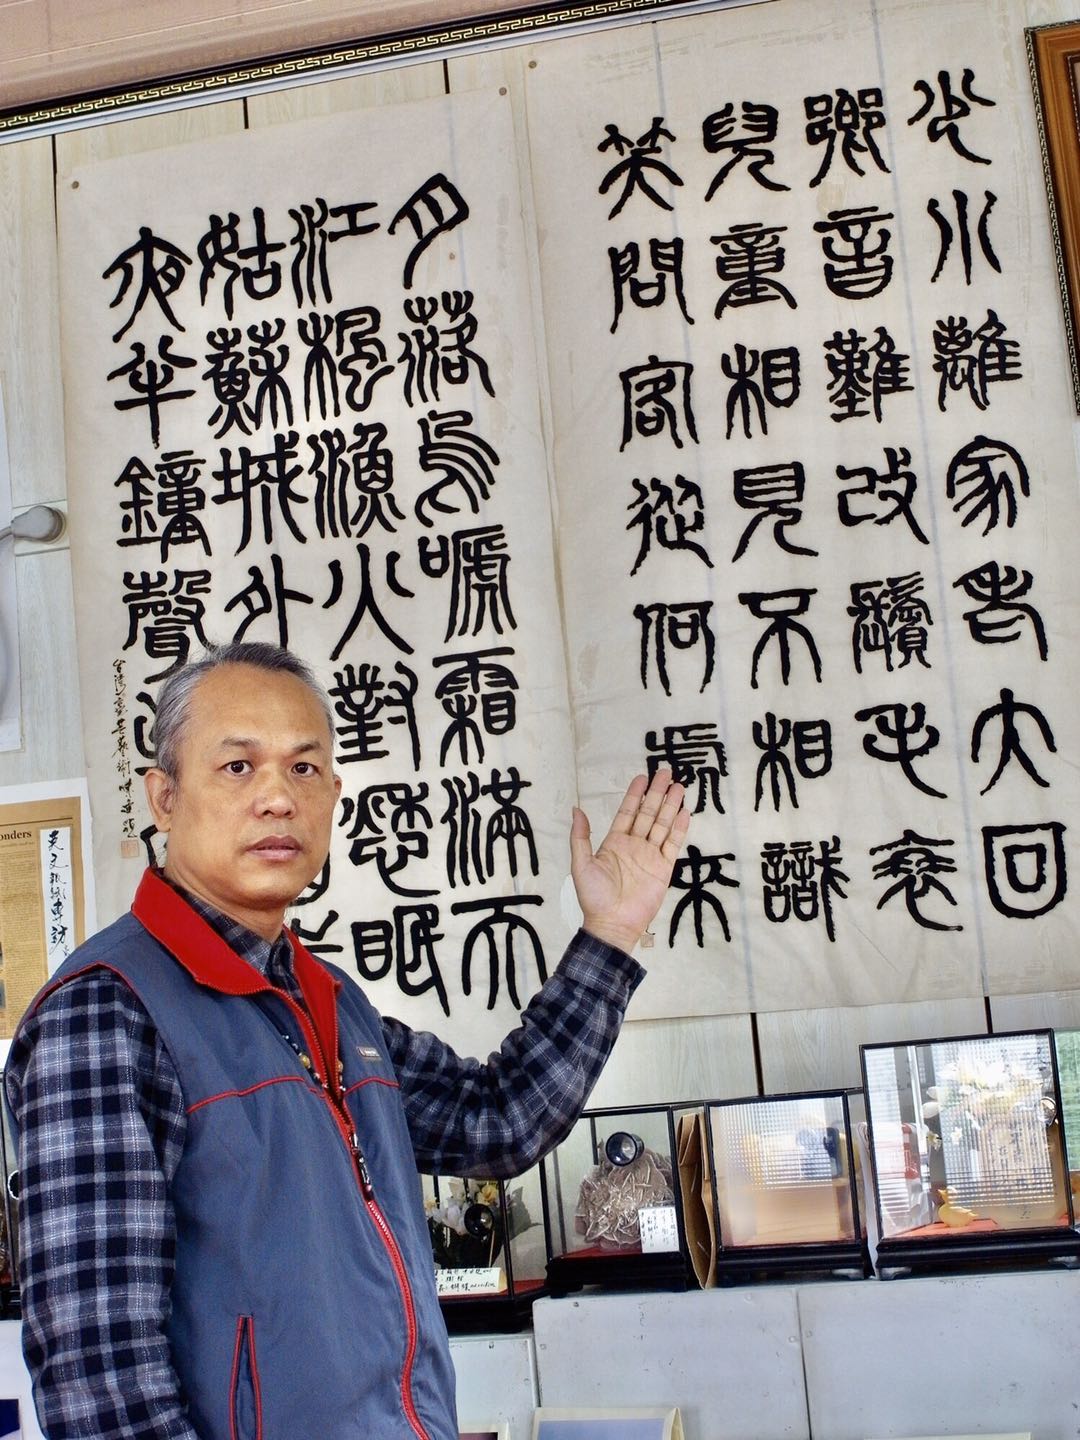 少小離家老大回
鄉音難改鬢毛衰
兒童相見不相識
笑問客從何處來
月落烏嗁霜滿天
江楓漁火對愁眠
姑蘇城外
夜半鐘聲
onders
英文報紙專訪